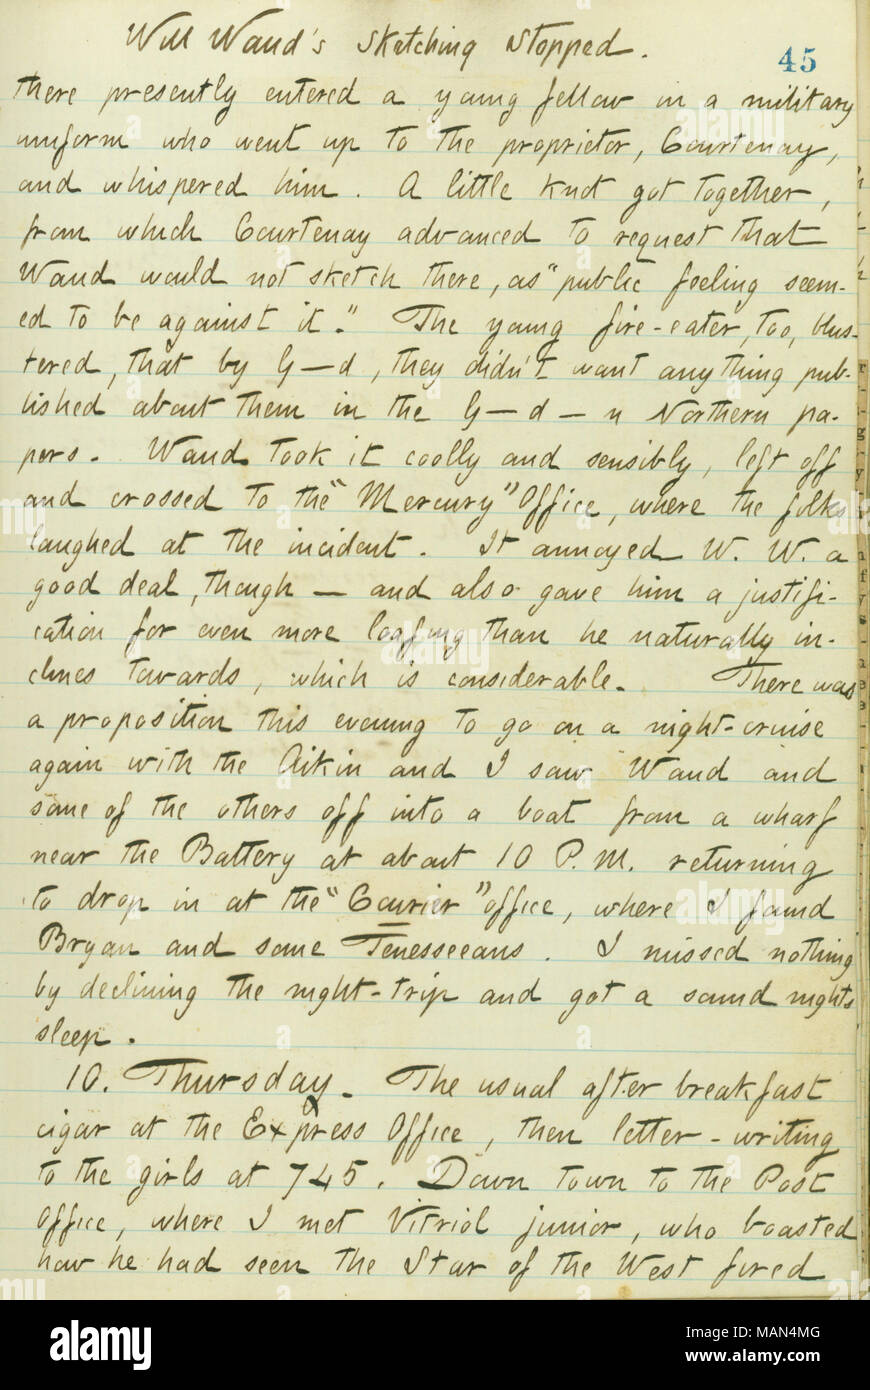 Will Waud's Sketching Stopped.
45
there presently entered a young fellow in a military
uniform who went up to the proprietor, Courtenay,
and whispered him. A little knot got together,
from which Courtenay advanced to request that
Waud would not sketch there, as "public feeling seem-
ed to be against it." The young fire-eater, too, blus-
tered, that by G—d, they didn't want anything pub-
lished about them in the G—d—n Northern pa-
pers. Waud took it coolly and sensibly, left off
and crossed to the "Mercury" Office, where the folks
laughed at the incident. It annoyed W. W. a
good deal, though — and also gave him a justifi-
cation for even more loafing than he naturally in-
clines towards, which is considerable. There was
a proposition this evening to go on a night-cruise
again with the Aikin and I saw Waud and
some of the others off into a boat from a wharf
near the Battery at about 10 P.M. returning
to drop in at the "Courier" office, where I found
Bryan and some Tenesseeans. I missed nothing
by declining the night-trip and got a sound nights
sleep.
10. Thursday. The usual after breakfast
cigar at the Express Office, then letter-writing
to the girls at 745. Down town to the Post
Office, where I met Vitriol junior, who boasted
how he had seen the Star of the West fired
alamy
Image ID: MAN4MG
www.alamy.com